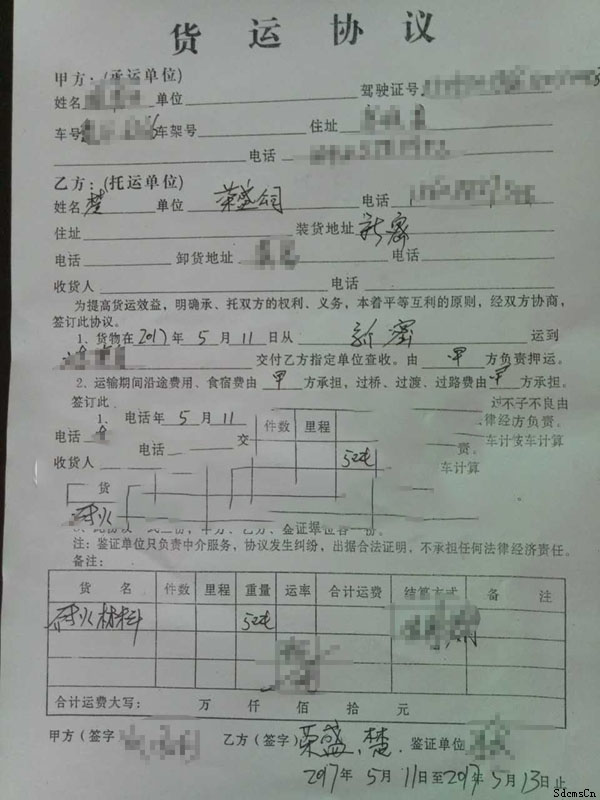 货运协议
甲方：(承运单位)
姓名 单位 驾驶证号
车号 车架号 住址
电话
乙方：(托运单位)
姓名 楚 单位 荣盛公司 电话
住址 装货地址 新密
电话 卸货地址 电话
收货人 电话
为提高货运效益，明确承、托双方的权利、义务，本着平等互利的原则，经双方协商，
签订此协议。
1、货物在2017年5月11日从 新密 运到
交付乙方指定单位查收。由 甲 方负责押运。
2、运输期间沿途费用、食宿费由 甲 方承担，过桥、过渡、过路费由 甲 方承担。
签订此 过不子不良由
1、电话年 5 月 11 件数 里程 律经方负责。
电话 电话 交 责。
车计按车计算
收货人 52吨 车计算
货
耐火
注：鉴证单位只负责中介服务，协议发生纠纷，出据合法证明，不承担任何法律经济责任。
备注：
货名 件数 里程 重量 运率 合计运费 结算方式 备注
耐火材料 52吨
合计运费大写： 万 仟 佰 拾 元
甲方（签字 乙方（签字）荣盛、楚 鉴证单位
2017年5月11日至2017年5月13日止
SdcmsCn